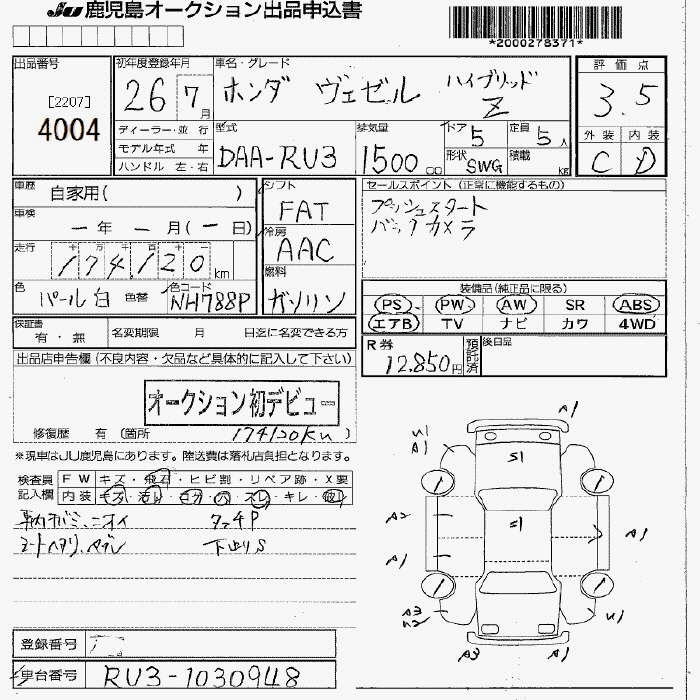 JU 鹿児島オークション出品申込書
*2000278371*
出品番号
[2207]
4004
初年度登録年月
26 7月
車名・グレード
ホンダ ヴェゼル ハイブリッド Z
評価点
3.5
外装 内装
C D
ディーラー・並行
モデル年式 年
ハンドル 左・右
型式
DAA-RU3
排気量
1500 cc
ドア 5
定員 5人
形状 SWG
積載 kg
車歴
自家用( )
車検
ー年 ー月(ー日)
走行
十 万 千 百 十
174,120 km
色
パール白 色替
色コード
NH788P
シフト
FAT
冷房
AAC
燃料
ガソリン
セールスポイント (正常に機能するもの)
プッシュスタート
バックカメラ
装備品(純正品に限る)
PS PW AW SR ABS
エアB TV ナビ カワ 4WD
保証書
有・無
名変期限 月 日迄に名変できる方
R券
12,850円
預託済
後日品
出品店申告欄(不良内容・欠品など具体的に記入して下さい)
オークション初デビュー
修復歴 有 (箇所 174120km)
※現車はJU鹿児島にあります。陸送費は落札店負担となります。
検査員記入欄
FW キズ・飛石・ヒビ割・リペア跡・X要
内装 キズ・汚レ・コゲ・穴・スレ・キレ・破レ
車内カビ、ニオイ タッチP
シートヘタリ、ヤブレ 下廻りS
A1
U1
A1
S1
A2
S1
A1
A1
A3
U2
U1
A3
A1
登録番号
車台番号
RU3-1030948